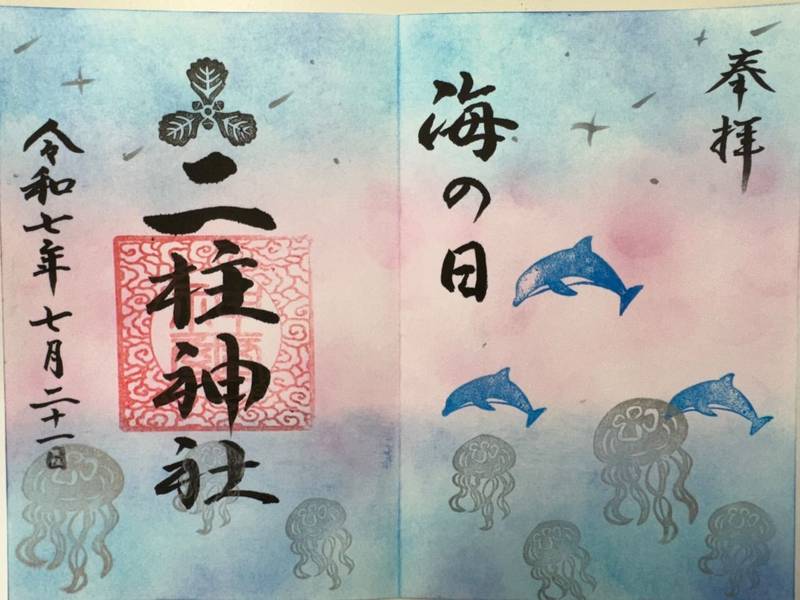 奉拝
海の日
二柱神社
令和七年七月二十一日